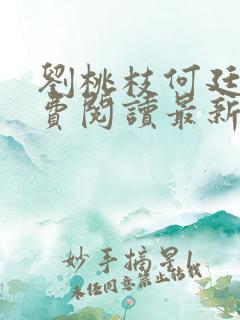 劉桃枝何廷
費閱讀最新
妙手摘星
未任同意禁止转载